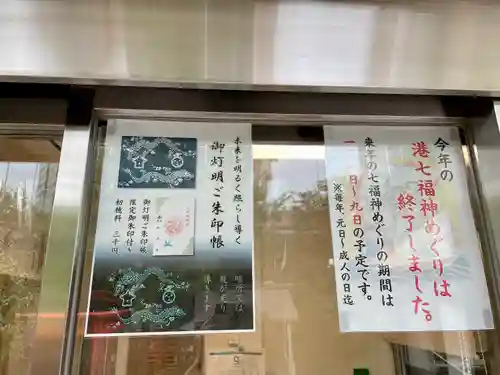 今年の
港七福神めぐりは
終了しました。
来年の七福神めぐりの期間は
一日～九日の予定です。
※毎年、元日～成人の日迄
未来を明るく照らし導く
御灯明ご朱印帳
御灯明ご朱印帳
限定御朱印付き
初穂料 三千円
暗所では
龍が光り
導きます